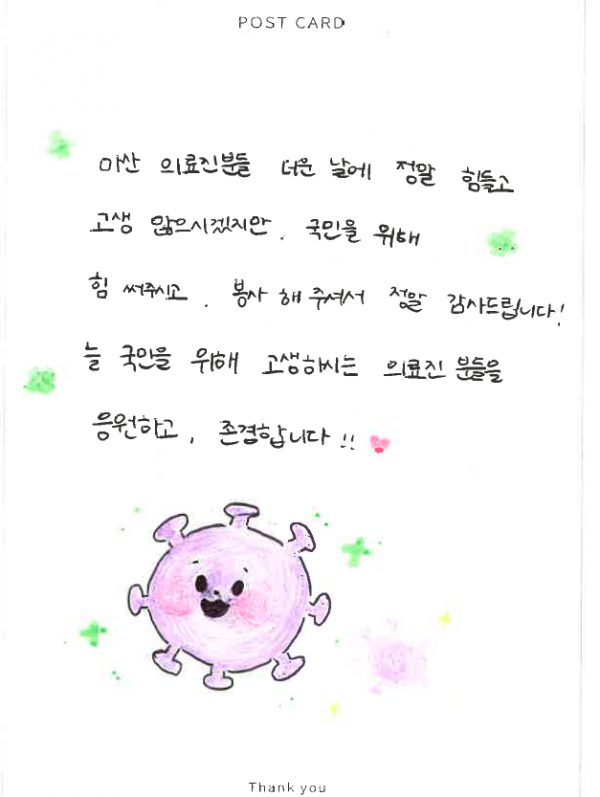 POST CARD
아산 의료진분들 더운 날에 정말 힘들고
고생 많으시겠지만, 국민을 위해
힘 써주시고, 봉사 해 주셔서 정말 감사드립니다!
늘 국민을 위해 고생하시는 의료진 분들을
응원하고, 존경합니다!!
Thank you